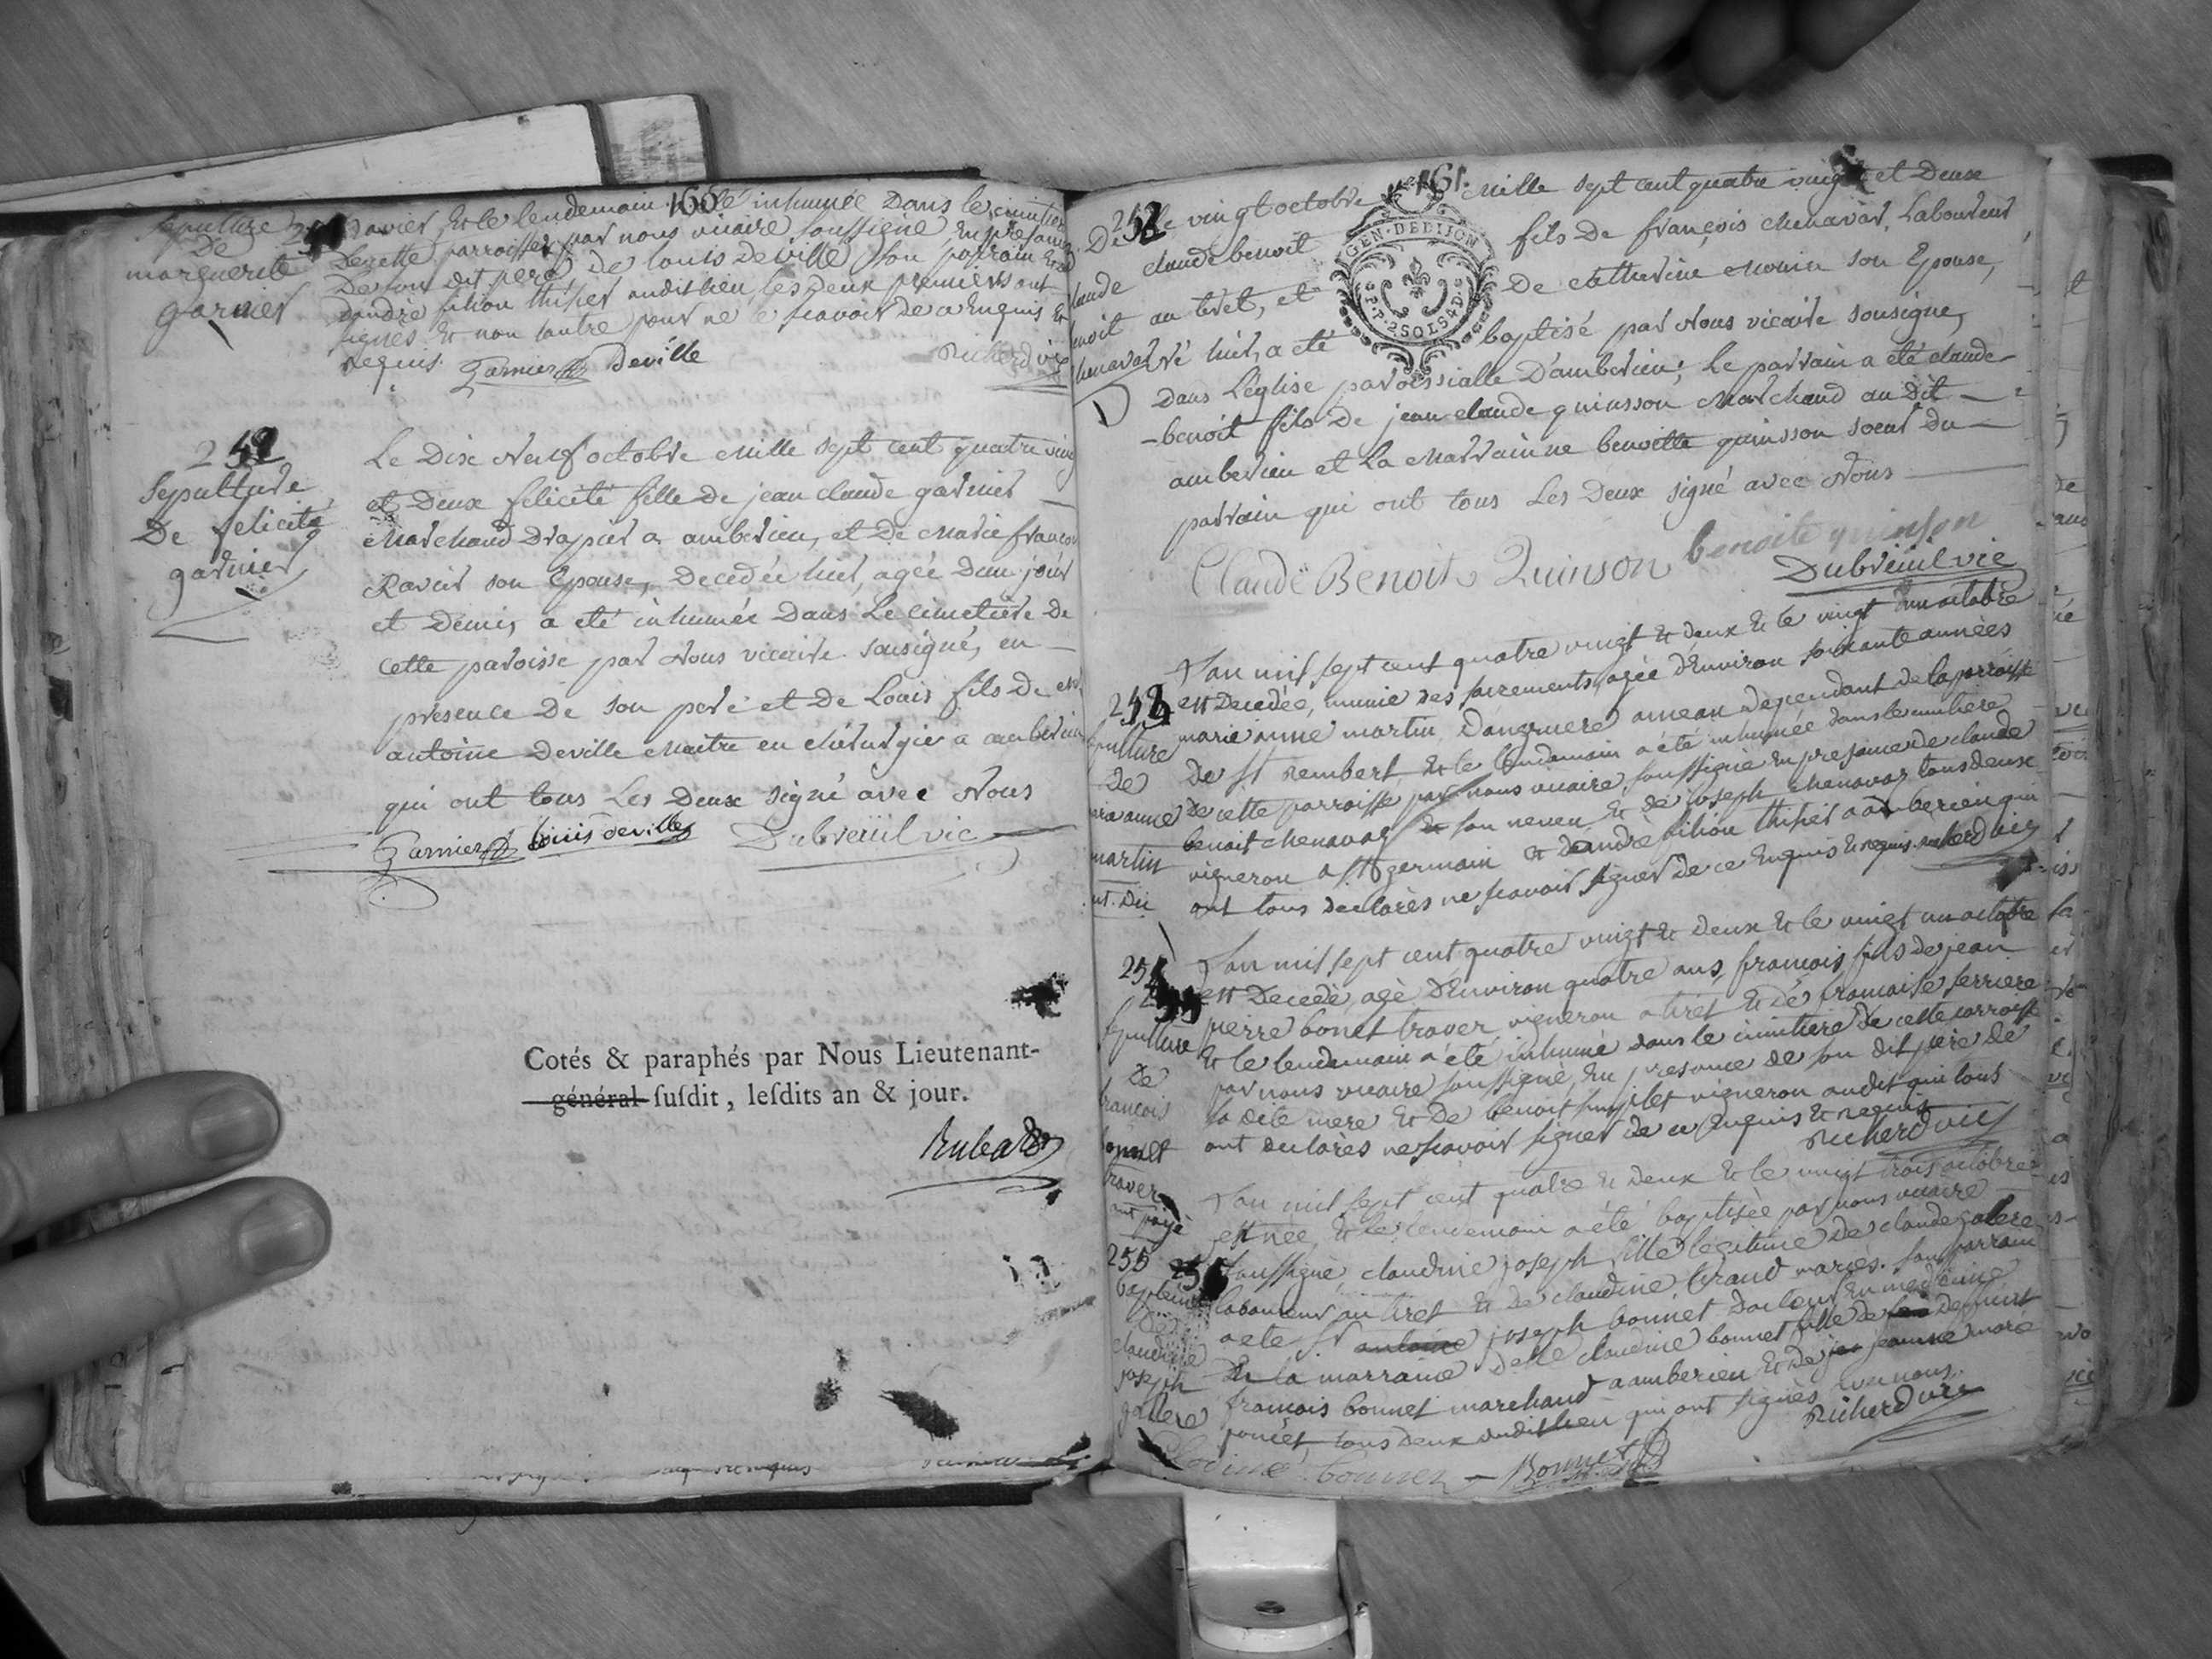 160
Sepulture
De
marguerite
garnier
ravier, & le lendemain a été inhumée Dans le cimitiere
De cette parroisse, par nous vicaire soussigné, En presance
De son dit pere De louis deville son parrain & d
dandré filion thisier audit lieu, les deux premiers ont
signés & non lautre pour ne le scavoir de ce Enquis &
requis. Garnier Deville Richerd vic
252
Sepulture
De felicité
garnier
Le Dix Neuf octobre mille sept cent quatre ving
et Deux felicité fille de jean claude garnier
Marchand Drapier a amberieu, et De Marie françoi
Ravier son Epouse, Decedée hier, agée Dun jour
et Demi, a eté inhumée Dans Le cimetiere De
cette paroisse par Nous vicaire sousigné, en
presence De son pere et De Louis fils De
antoine Deville Maitre en chirurgie a amberieu
qui ont tous Les Deux signé avec Nous
Garnier louis deville Dubreüil vic
Cotés & paraphés par Nous Lieutenant-
général susdit, lesdits an & jour.
Rubard
161.
GEN·DEDIJON
2SOLS4D
Le vingt octobre mille sept cent quatre vingt et Deux
claude benoit fils De françois chenavas, Laboureur
au tiret, et De Catherine Monin son Epouse,
né hier, a eté baptisé par Nous vicaire sousigné,
Dans L'église paroissialle D'amberieu; Le parrain a eté claude
-benoit fils De jean claude quinsson Marchand au Dit
amberieu et La Marrainne benoitte quinsson soeur Du
parrain qui ont tous Les Deux signé avec Nous
Claude Benoit Quinson benoite quinson
Dubreüil vic
Sepulture
De
marianne
martin
L'an mil sept cent quatre vingt & deux & le vingt un octobre
est Decedée, munie des sacrements, agée d'Environ soixante années
marie anne martin, Dangruere ameau dependant de la parroisse
De St rembert & le lendemain a été inhumée dans le cimitiere
de cette parroisse par nous vicaire soussigné En presance de claude
benoit chenavas son neveu & de joseph chenavas tous deux
vigneron a St germain & dandré filion thisier a amberieu qui
ont tous declarés ne scavoir signer de ce Enquis & requis. Richerd vic
Sepulture
De
francois
bonnet
traver
ont payé
L'an mil sept cent quatre vingt & deux & le vingt un octobre
est Decedé, agé d'Environ quatre ans, francois, fils de jean
pierre bonet traver, vigneron a tiret & de francoise serriere
& le lendemain a été inhumé dans le cimitiere de cette parroisse
par nous vicaire soussigné, En presance de son dit pere de
sa dite mere & De benoit vigneron audit qui tous
ont declarés ne scavoir signer de ce Enquis & requis
Richerd vic
255
bapteme
De
claudine
joseph
gallere
L'an mil sept cent quatre & deux & le vingt trois octobre
est née, & le lendemain a été baptisée par nous vicaire
soussigné, claudine joseph fille legitime de claude galere
laboureur au tiret & De claudine brand mariés. son parrain
a été Sr antoine joseph bonnet docteur En medecine
& la marraine Delle claudine bonnet fille de deffunt
francois bonnet marchand a amberieu & De jeanne mare
poncet, tous deux dudit lieu qui ont signés avec nous.
Richerd vic
Clodine bonnet Bonnet